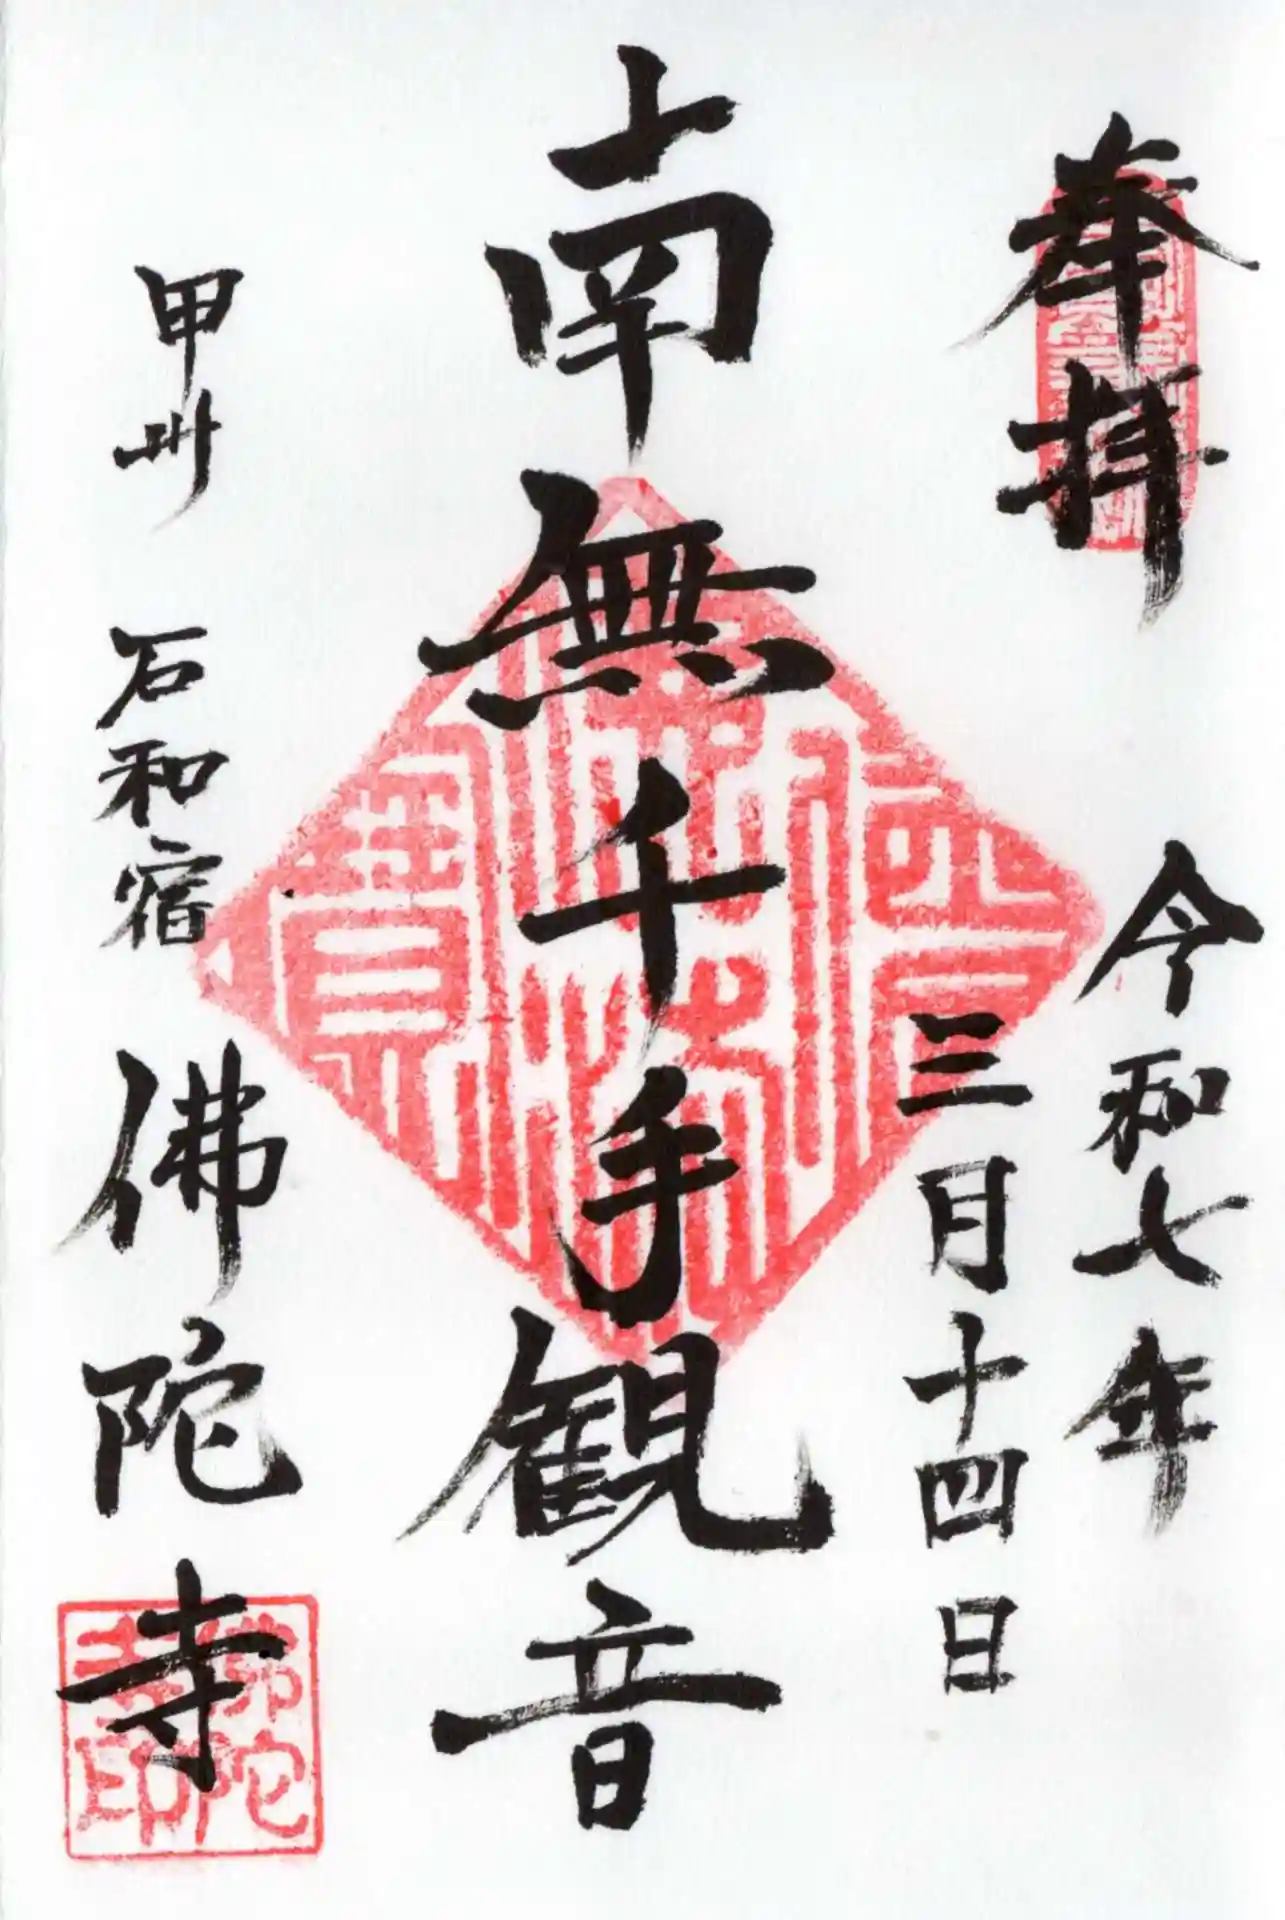 奉拝
令和七年
三月十四日
南無千手観音
甲州 石和宿 佛陀寺
佛陀
寺印